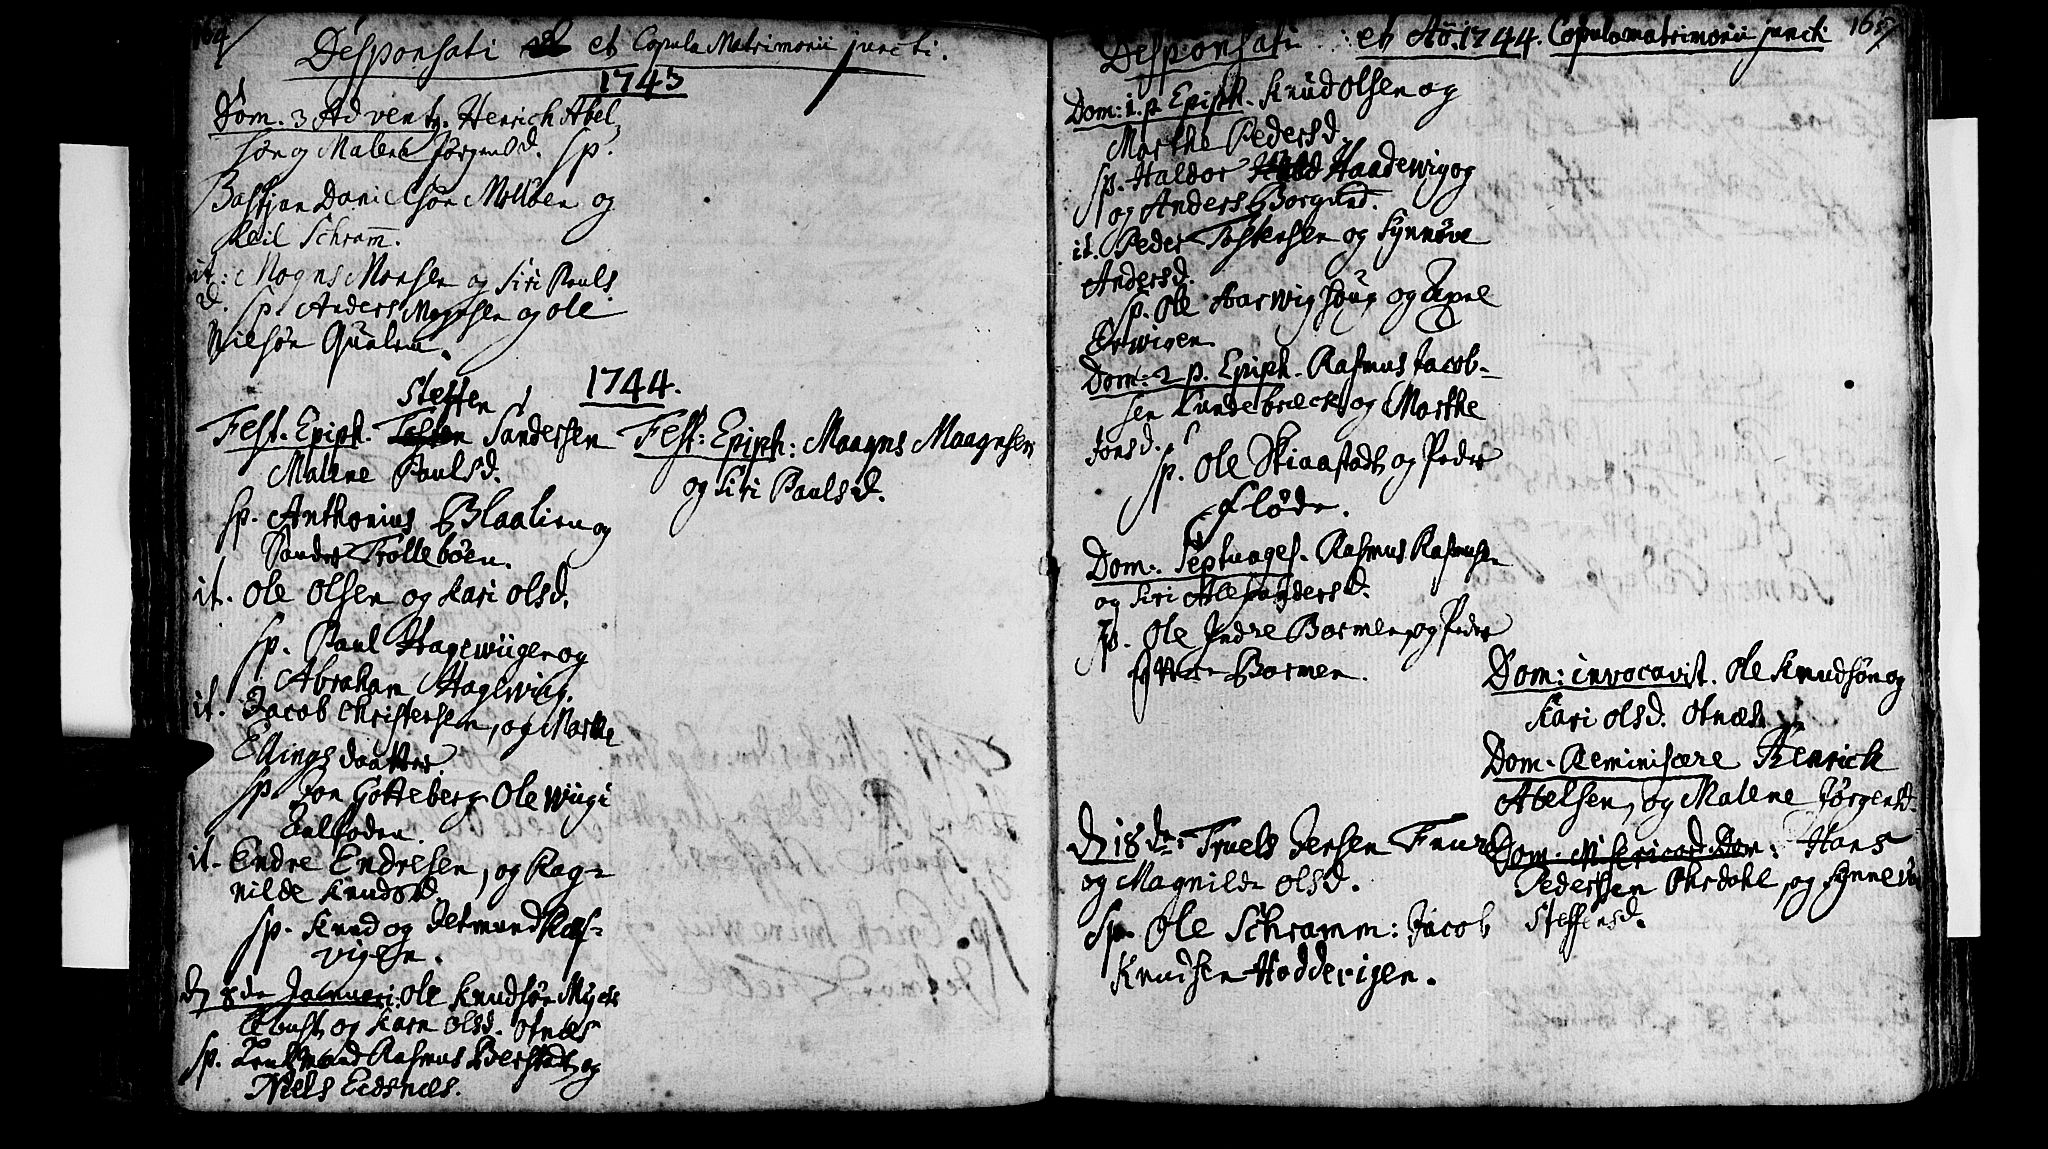 164
Desponsati et Copula Matrimonii juncti.
1743
Dom. 3 Advent. Henrich Abel-
søn og Malene Jørgensd. Sp.
Bastjan Danielsøn Molden og
Neil Schram̄.
it: Mogns Monsen og Siri Pauls
d. Sp. Anders Mognsen og Ole
Nielsøn Qualen.
1744.
Steffen
Fest. Epiph. Sandersen
Malene Paulsd.
Sp. Anthonius Blaalien og
Sander Trolleböen.
it. Ole Olsen og Kari Olsd.
Sp. Paul Hagewiigen og
Abraham Hagewiig.
it. Jacob Christensen, og Marthe
Ellings daatter
Sp. Jon Gotteberg Ole Wiigi
Kalfoden
it. Endre Endresen, og Rag-
nilde Knudsd.
Sp. Knud og Jetmund
vigen.
d 8de Januari: Ole Knudsøn Myele
bust og Karn Olsd. Otnæs
Sp. Rasmus Berstad og
Niels Eidsnæs.
Fest: Epiph: Maagns Maagnsen
og Siri Paulsd.
165
Desponsati et Aō. 1744. Copula matrimonii juncti
Dom: 1. p Epiph. Knud Olsen og
Marthe Pedersd.
Sp. Haldor Haadewig og
og Anders Borgund.
it. Peder Tostensen og Synnöve
Andersd.
Sp. Ole Aarwig og Axel
Ørwigen
Dom: 2 p. Epiph. Rasmus Jacob-
sen Lundebræck og Marthe
Jonsd.
Sp. Ole Skiaastad og Peder
Fløde.
Dom: Septuages. Rasmus Rasmusen
og Siri Alexandersd.
Sp. Ole Indre Barmen, og Peder
Barmen.
d 18de. Truels Jensen
og Magnilde Olsd.
Sp. Ole Schramm: Jacob
Knudsen Hodderigen.
Dom: invocavit. Ole Knudsøn og
Kari Olsd. Otnæs
Dom. Reminiscere Henrick
Abelsen, og Malene Jørgensd.
Dom. Misericord. Dom: Hans
Pedersen Ørsdahl, og Synneve
Steffensd.